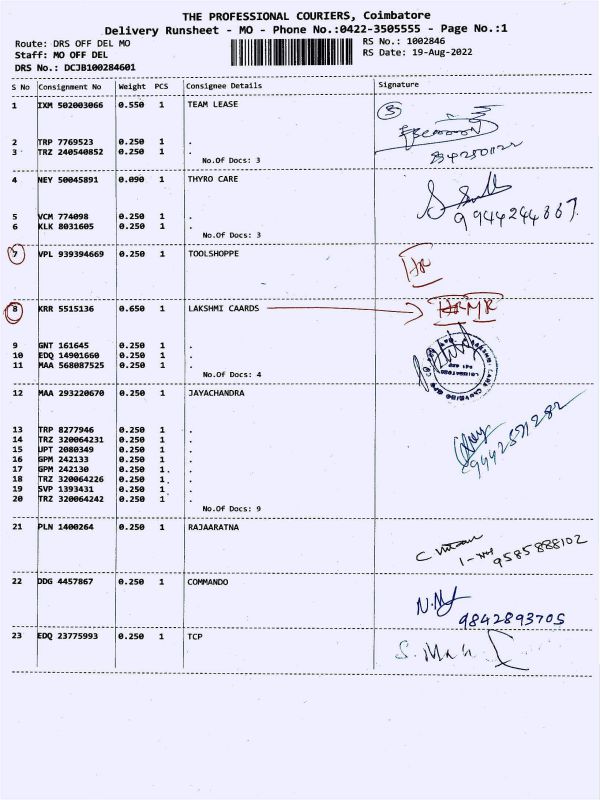 THE PROFESSIONAL COURIERS, Coimbatore
Delivery Runsheet - MO - Phone No.:0422-3505555 - Page No.:1
Route: DRS OFF DEL MO RS No.: 1002846
Staff: MO OFF DEL RS Date: 19-Aug-2022
DRS No.: DCJB100284601
S No Consignment No Weight PCS Consignee Details Signature
1 IXM 502003066 0.550 1 TEAM LEASE
2 TRP 7769523 0.250 1 .
3 TRZ 240540852 0.250 1 .
No.Of Docs: 3
4 NEY 50045891 0.090 1 THYRO CARE
5 VCM 774098 0.250 1 .
6 KLK 8031605 0.250 1 .
No.Of Docs: 3
7 VPL 939394669 0.250 1 TOOLSHOPPE
8 KRR 5515136 0.650 1 LAKSHMI CAARDS
9 GNT 161645 0.250 1 .
10 EDQ 14901660 0.250 1 .
11 MAA 568087525 0.250 1 .
No.Of Docs: 4
12 MAA 293220670 0.250 1 JAYACHANDRA
13 TRP 8277946 0.250 1 .
14 TRZ 320064231 0.250 1 .
15 UPT 2080349 0.250 1 .
16 GPM 242133 0.250 1 .
17 GPM 242130 0.250 1 .
18 TRZ 320064226 0.250 1 .
19 SVP 1393431 0.250 1 .
20 TRZ 320064242 0.250 1 .
No.Of Docs: 9
21 PLN 1400264 0.250 1 RAJAARATNA
9585888102
22 DDG 4457867 0.250 1 COMMANDO
9842893705
23 EDQ 23775993 0.250 1 TCP